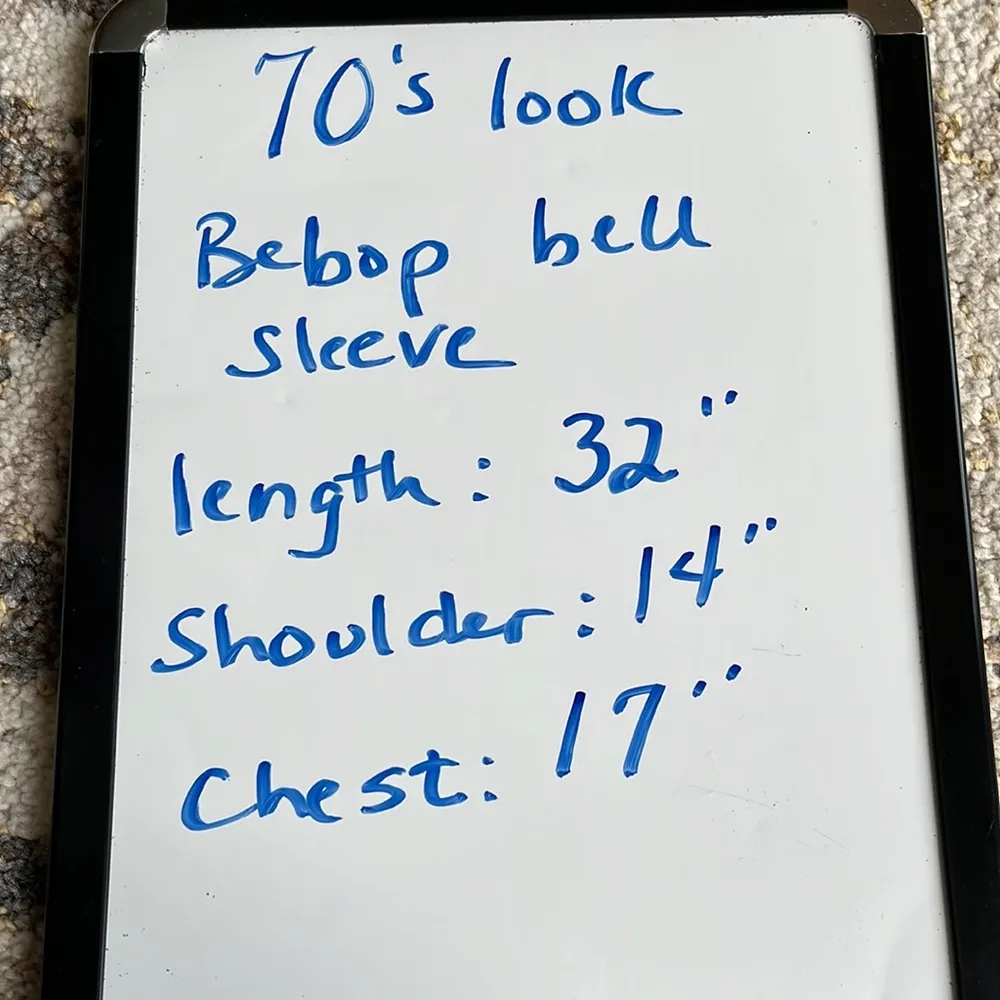 70's look
Bebop bell
sleeve
length: 32"
Shoulder: 14"
Chest: 17"